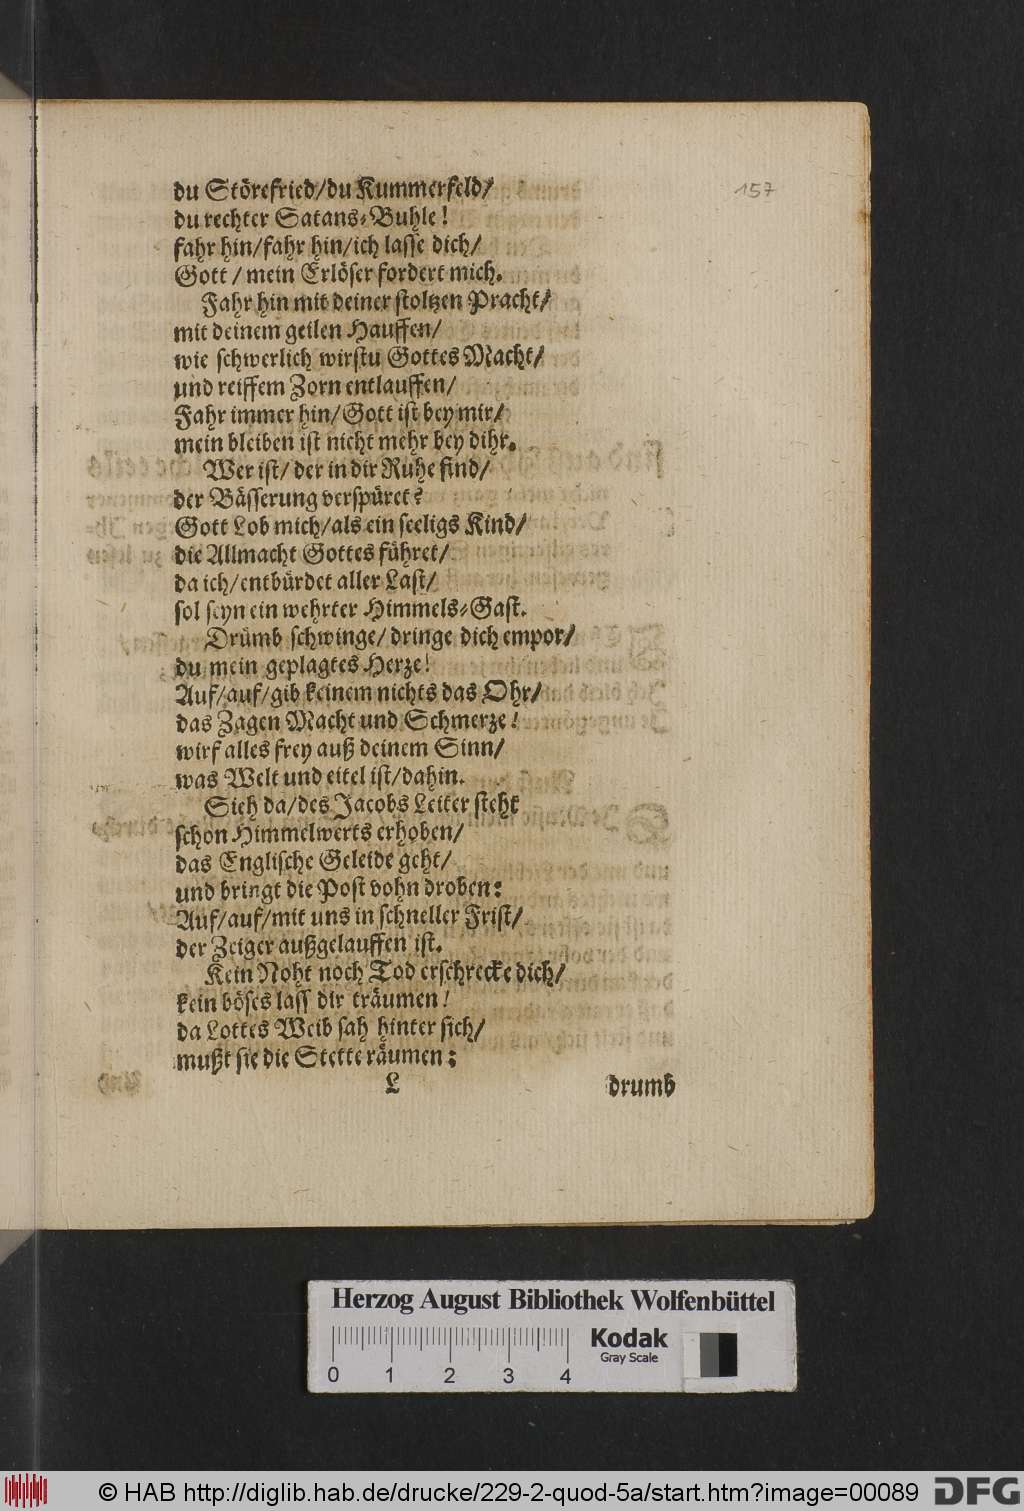 157
du Störefried/du Kummerfeld/
du rechter Satans-Buhle!
fahr hin/fahr hin/ich lasse dich/
Gott / mein Erlöser fordert mich.
Fahr hin mit deiner stoltzen Pracht/
mit deinem geilen Hauffen/
wie schwerlich wirstu Gottes Macht/
und reiffem Zorn entlauffen/
Fahr immer hin/Gott ist bey mir/
mein bleiben ist nicht mehr bey dihr.
Wer ist/ der in dir Ruhe find/
der Bässerung verspüret?
Gott Lob mich/als ein seeligs Kind/
die Allmacht Gottes führet/
da ich/entbürdet aller Last/
sol seyn ein wehrter Himmels-Gast.
Drümb schwinge/ dringe dich empor/
du mein geplagtes Herze!
Auf/auf/gib keinem nichts das Ohr/
das Zagen Macht und Schmerze!
wirf alles frey auß deinem Sinn/
was Welt und eitel ist/dahin.
Sieh da/des Jacobs Leiter steht
schon Himmelwerts erhoben/
das Englische Geleide geht/
und bringt die Post vohn droben:
Auf/auf/mit uns in schneller Frist/
der Zeiger außgelauffen ist.
Kein Noht noch Tod erschrecke dich/
kein böses lass dir träumen!
da Lottes Weib sah hinter sich/
mußt sie die Stette räumen:
L drumb
Herzog August Bibliothek Wolfenbüttel
Kodak
Gray Scale
0 1 2 3 4
© HAB http://diglib.hab.de/drucke/229-2-quod-5a/start.htm?image=00089
DFG